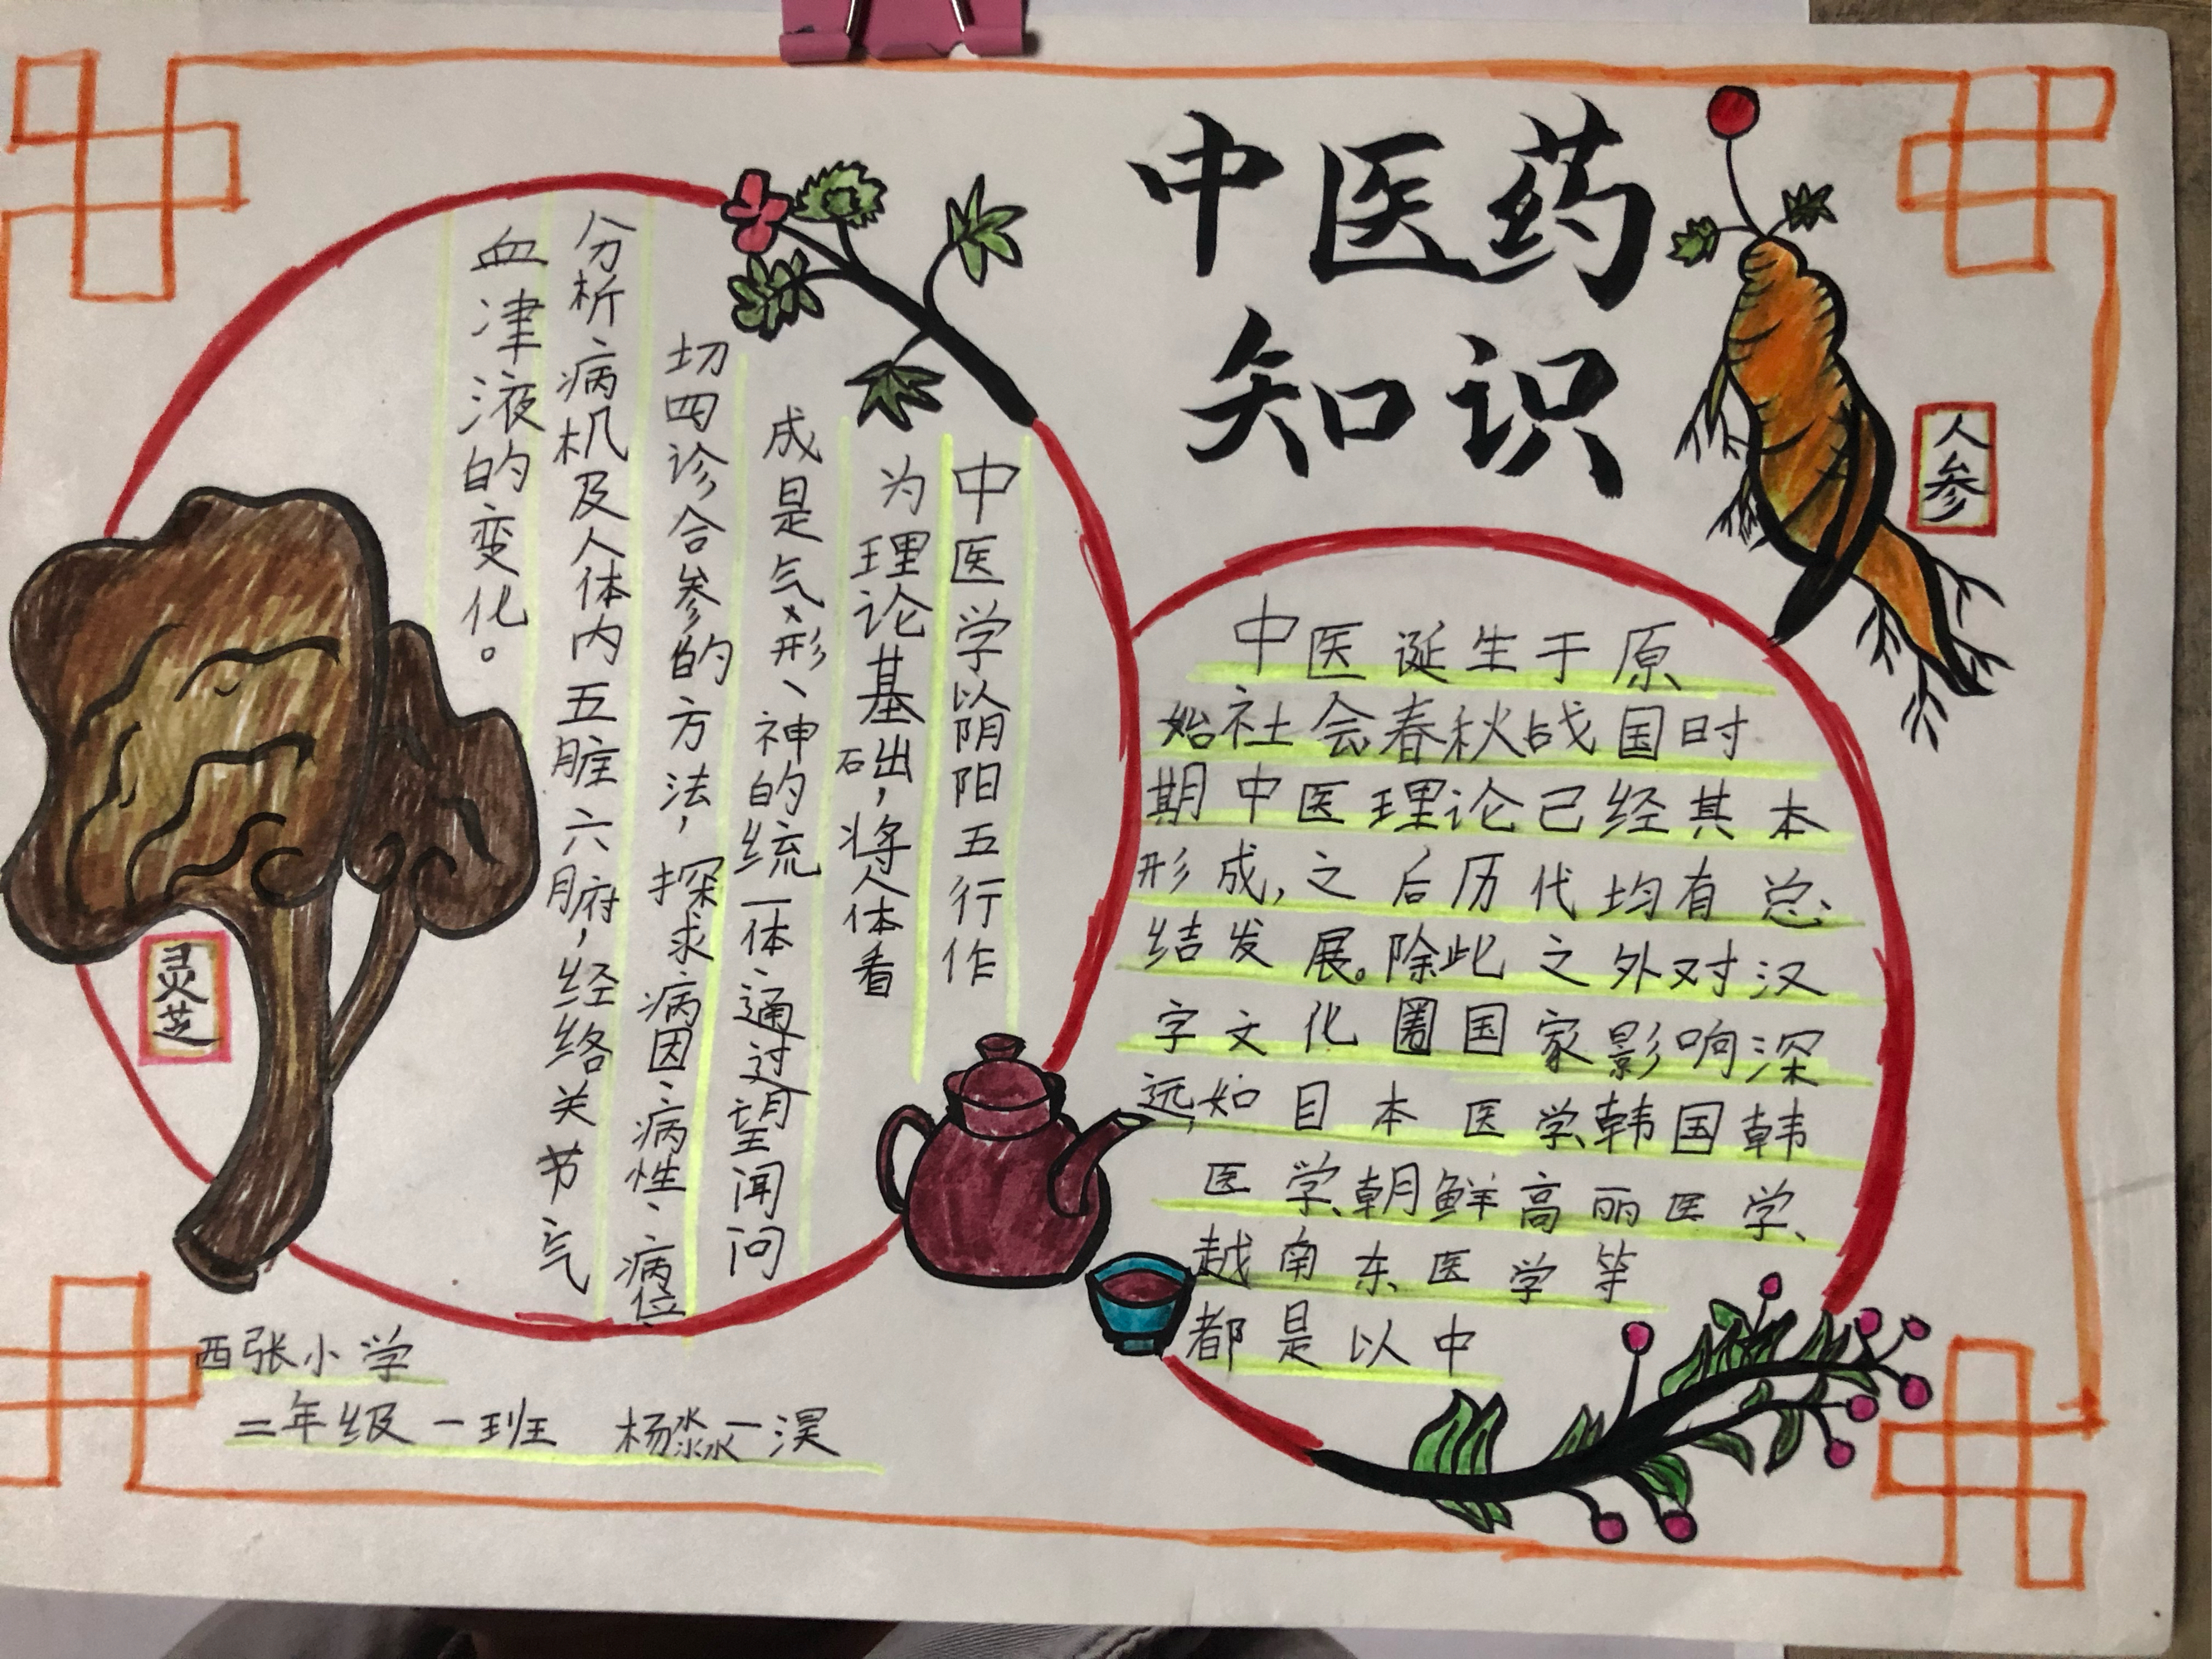 中医药
知识
人参
中医学以阴阳五行作
为理论基础，将人体看
成是气、形、神的统一体、通过望闻问
切四诊合参的方法，探求病因、病性、病位
分析病机及人体内五脏六腑，经络关节气
血津液的变化。
中医诞生于原
始社会春秋战国时
期中医理论已经其本
形成，之后历代均有总
结发展。除此之外对汉
字文化圈国家影响深
远，如目本医学、韩国韩
医学、朝鲜高丽医学、
越南东医学等
都是以中
灵芝
西张小学
二年级一班 杨淼一淏